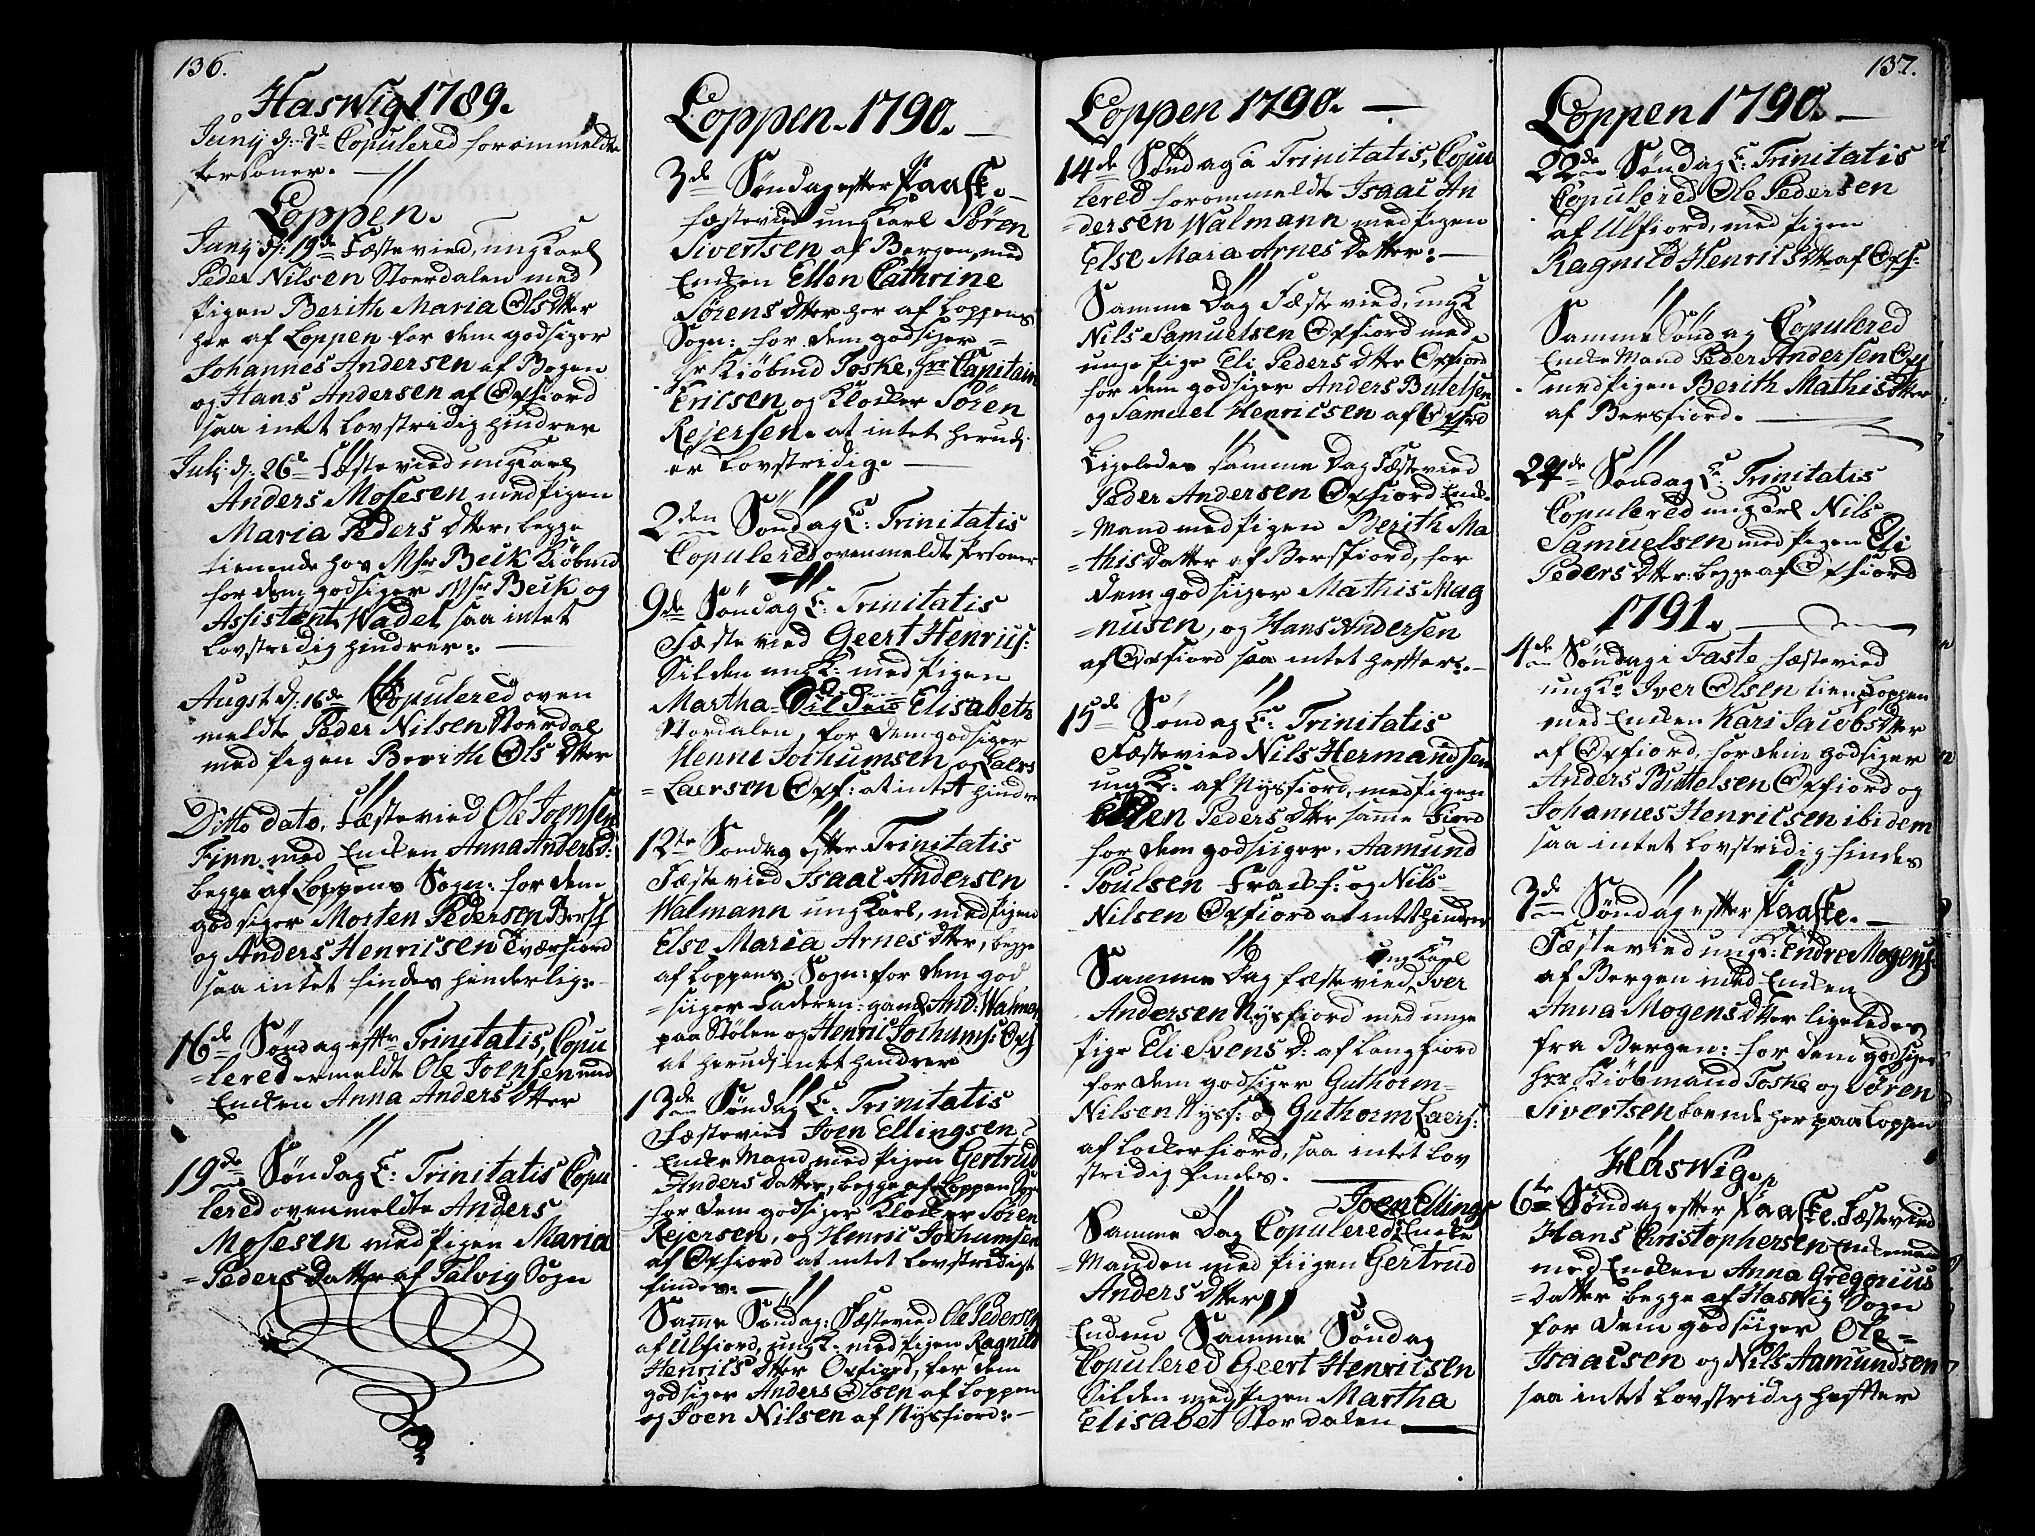 136.
Haswig 1789.
Junij d: 3de Copulered forommeldte
Personer.
Loppen.
Junij d: 19de Fæstevied, ungKarl
Peder Nilsen Stoerdalen med
Pigen Berith Maria Olsdtter
her af Loppen for dem godsiger
Johannes Andersen af Bogen
og Hans Andersen af Öxfiord
saa intet lovstridig hindrer
Julij d: 26de Fæstevied ungKarl
Anders Mosesen med Pigen
Maria Peders Dtter, begge
tienende hos Msr Beck Kiöbmd
for dem godsiger Msr Beck og
Assistent Wadel saa intet
lovstridig hindrer.
Augst d: 16de Copulered oven
meldte Peder Nilsen Stoerdal
med Pigen Berith Ols Dtter
Ditto dato, Fæstevied Ole Joensen
Finn med Enken Anna Andersd:
begge af Loppens Sogn: for dem
godsiger Morten Pedersen Bersf
og Anders Henricsen Tværfiord
saa intet findes henderlig:
16de Söndag efftr Trinitatis, Copu
=lered ermeldte Ole Joensen med
Enken Anna Anders Dtter
19de Söndag E: Trinitatis Copu
lered ovenmeldte Anders
Mosesen med Pigen Maria
=Peders Datter af Talvig Sogn
Loppen 1790.
3de Söndag efter Paaske
fæstevied ungKarl Sören
Sivertsen af Bergen, med
Enken Ellen Cathrine
Sörens Dtter her af Loppens
Sogn: for dem godsiger
hr Kiöbmd Foske, hrr Capitain
Ericsen og Klocker Sören
Rejersen. at intet herudj
er lovstridig.
2den Söndag E: Trinitatis
Copulered ovenmeldte Personer
9de Söndag E: Trinitatis
Fæstevied Geert Henrics:
Silden ungK: med Pigen
Martha Elisabeth
Stordalen, for dem godsiger
Henric Jochumsen og Laers
=Laersen Öxf: at intet hindrer
12te Söndag efter Trinitatis
Fæstevied Isaac Andersen
Walmann ungKarl, med Pigen
Else Maria Arnes Dtter, begge
af Loppens Sogn: for dem god
=siiger Faderen: And: Walman
paa Stölen og Henric Jochums: Öxf
at herudj intet hindrer
13de Söndag E: Trinitatis
Fæstevied Joen Ellingsen
Enke Mand, med Pigen Gertrud
Anders Datter, begge af Loppen Sogn
for dem godsiger Klocker Sören
Rejersen, og Henric Jochumsen
af Öxfiord at intet lovstridigt
findes.
Samme Söndag: Fæstevied Ole Pedersen
af Ulfiord, ungK: med Pigen Ragnild
Henrics Dtter Öxfiord, for dem
godsiger Anders Olsen af Loppen
og Joen Nilsen af Nysfiord:
Loppen 1790.
14de Söndag E Trinitatis, Copu
lered forommeldte Isaac An
=dersen Walmann med Pigen
Else Mara Arnes Datter.
Samme Dag Fæstevied, ungK
Nils Samuelsen Öxfiord med
unge Pige Eli Peders Dtter Öxfiord
for dem godsiger Anders Butelsen
og Samuel Henricsen af Öxfiord
Ligeledes samme Dag Fæstevied
Peder Andersen Öxfiord Enke
=Mand med Pigen Berith Ma
=this Datter af Bersfiord, for
dem godsiiger Mathis Mag
=nusen, og Hans Andersen
af Öxfiord saa intet heffter
15de Söndag E: Trinitatis
Fæstevied Nils Hermandsen
ungK: af Nysfiord, med Pigen
Ellen Peders Dtter samme Fiord
for dem godsiiger, Aamund
Poulsen Fracf: og Nils
Nilsen Öxfiord at intet hindrer
ung Karl
Samme Dag fæstevied, Iver
Andersen Nysfiord med unge
Pige Eli Svens D: af Langfiord
for dem godsiger Guthorm
Nilsen Nysf: og Guthorm Laers:
af Lockerfiord, saa intet lov
stridig findes.
Joen Ellings
Samme Dag Copulered Enke
=Manden med Piigen Gertrud
Anders Dtter
Endnu Samme Söndag
Copulered Geert Henricsen
Silden med Pigen Martha
Elisabet Stordalen
137.
Loppen 1790.
22de Söndag E: Trinitatis
Copulered Ole Pedersen
af Ulfiord, med Pigen
Ragnild Henrics Dtter af Öxf:
Samme Söndag Copulered
Enke Mand Peder Andersen Öxf
med Pigen Berith Mathis Dtter
af Bersfiord.
24de Söndag E: Trinitatis
Copulered ungKarl Nils
Samuelsen med Pigen Eli
Peders Dtter begge af Öxfiord
1791.
4de Söndag i Faste fæstevied
ungK: Iver Olsen tien: Loppen
med Enken Kari Jacobs Dtter
af Öxfiord, for dem godsiger
Anders Buttelsen Öxfiord og
Johannes Henricsen ibidem
saa intet lovstridig findes
3de Söndag efter Paaske.
Fæstevied ungK: Endre Mogens:
af Bergen med Enken
Anna Mogens Dtter ligeledes
fra Bergen: for dem godsiger
hrr Kiöbmand Foske og Sören
Sivertsen boende her paa Loppen
Haswig.
6te Söndag efter Paaske. Fæstevied
Hans Christophersen Enkemand
med Enken Anna Gregorius
=Datter begge af Haswig Sogn
for dem godsiiger Ole
Isaacsen og Nils Aamundsen
saa intet lovstridig heffter